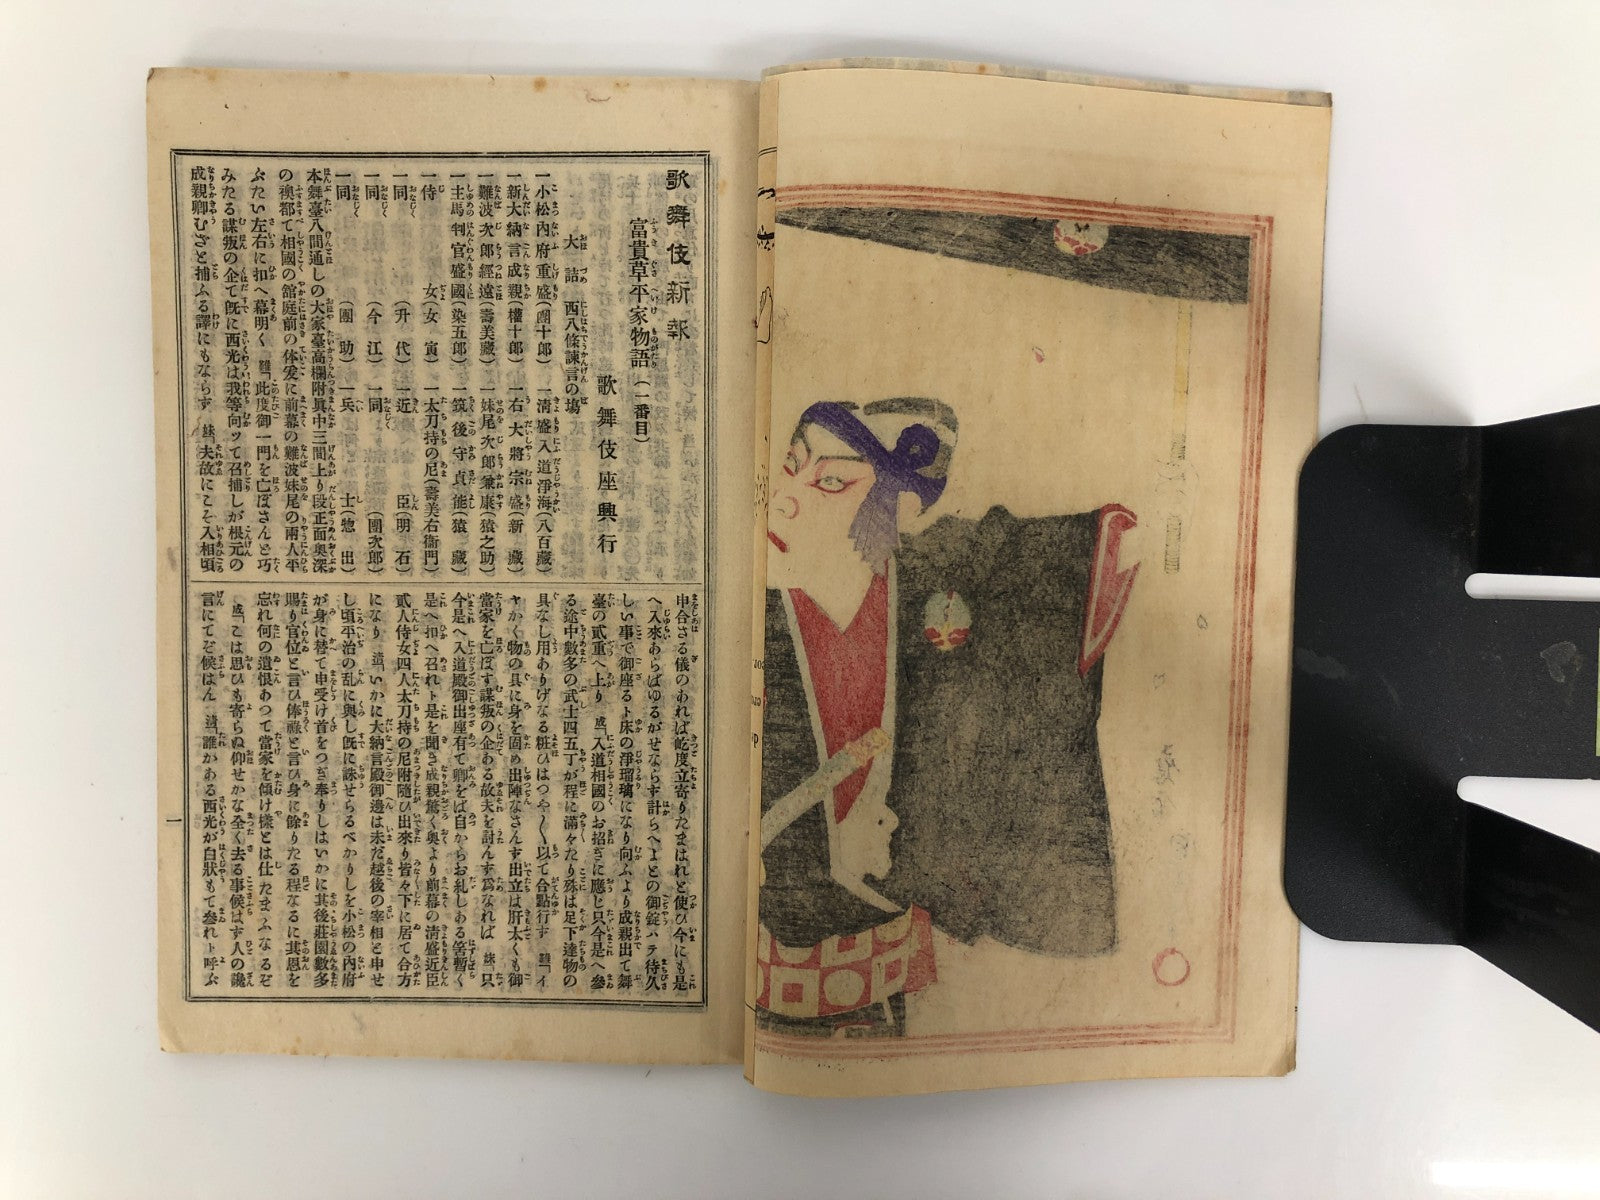 歌舞伎新報
富貴草平家物語(一番目)
歌舞伎座興行
大詰 西八條諫言の塲
一小松內府重盛(團十郎) 一淸盛入道淨海(八百藏)
一新大納言成親(權十郎) 一右大將宗盛(新藏)
一難波次郎經遠(壽美藏) 一妹尾次郎兼康(猿之助)
一主馬判官盛國(染五郎) 一筑後守貞能(猿藏)
一侍女(女寅) 一太刀持の尼(壽美右衞門)
一同(升代) 一近臣(明石)
一同(今江) 一同(團次郎)
一同(團助) 一兵士(惣出)
本舞臺八間通しの大家臺高欄附眞中三間上り段正面奧深
の襖都て相國の館庭前の体爰に前幕の難波妹尾の兩人平
ぶたい左右に扣へ幕明く 難「此度御一門を亡ぼさんと巧
みたる謀叛の企て旣に西光は我等向ッて召捕しが根元の
成親卿むざと捕ふる譯にもならず 妹「夫故にこそ入相頃
申合さる儀のあれば屹度立寄りたまはれと使ひ今にも是
へ入來あらばゆるがせならず計らへよとの御錠ハテ待久
しい事で御座るト床の淨瑠璃になり向ふより成親出て舞
臺の貳重へ上り 成「入道相國のお招きに應じ只今是へ參
る途中數多の武士四五丁が程に滿々たり殊は足下達物の
具なし用ありげなる粧ひはつや〳〵以て合點行ず 難「イ
ヤかく物の具に身を固め出陣なさんず出立は肝太くも御
當家を亡ぼす謀叛の企ある故夫を討んず爲なれば 妹「只
今是へ入道殿御出座有て卿をば自からお糺しある筈暫く
是へ扣へ召れト是を聞き成親驚く奧より前幕の淸盛近臣
貳人侍女四人太刀持の尼附隨ひ出來り皆々下に居て合方
になり 淸「いかに大納言殿御邊は未だ越後の宰相と申せ
し頃平治の乱に與し旣に誅せらるべかりしを小松の內府
が身に替て申受け首をつぎ奉りしはいかに其後莊園數多
賜り官位と言ひ俸祿と言ひ身に餘りたる程なるに其恩を
忘れ何の遺恨あつて當家を傾け樣とは仕たまふなるぞ
成「こは思ひも寄らぬ仰せかな全く去る事候はず人の讒
言にてぞ候はん 淸「誰かある西光が白狀もて參れト呼ぶ
一